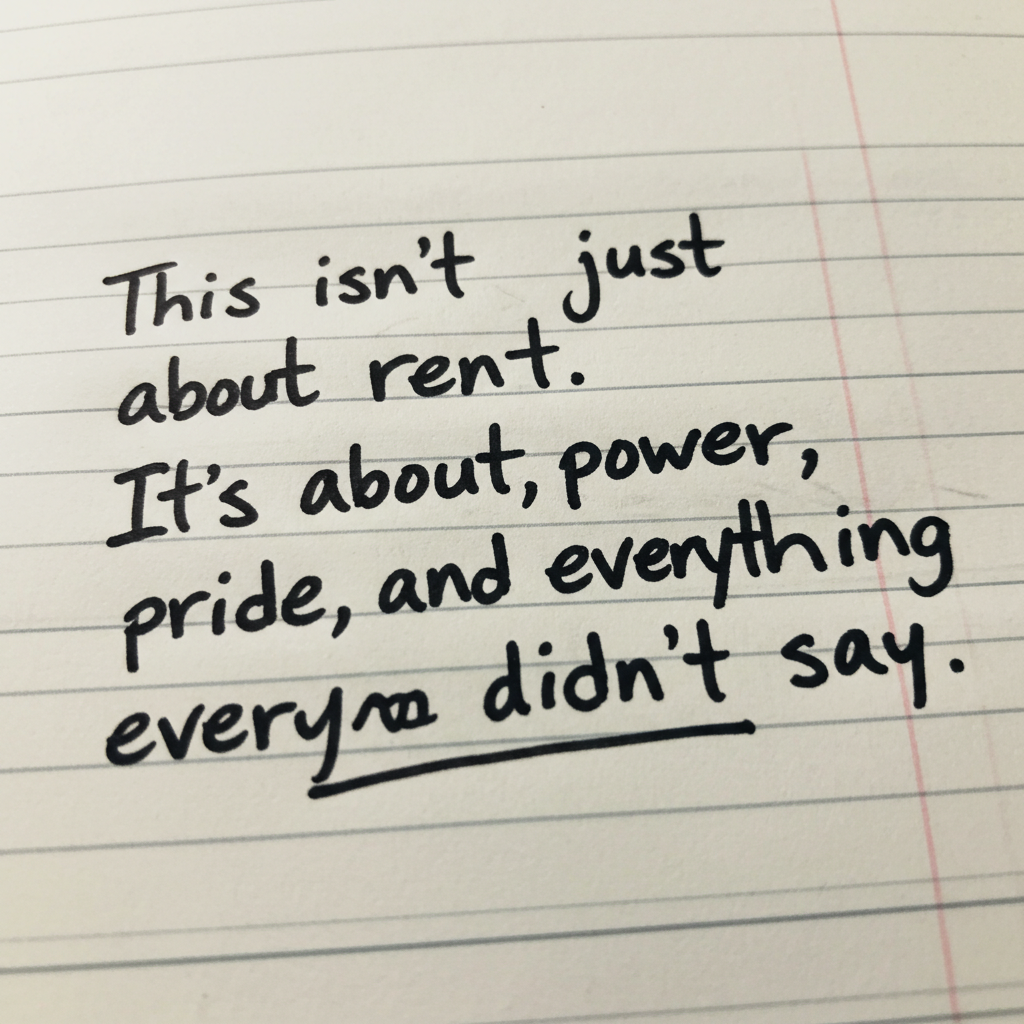 This isn't just
about rent.
It's about, power,
pride, and everything
didn't say.